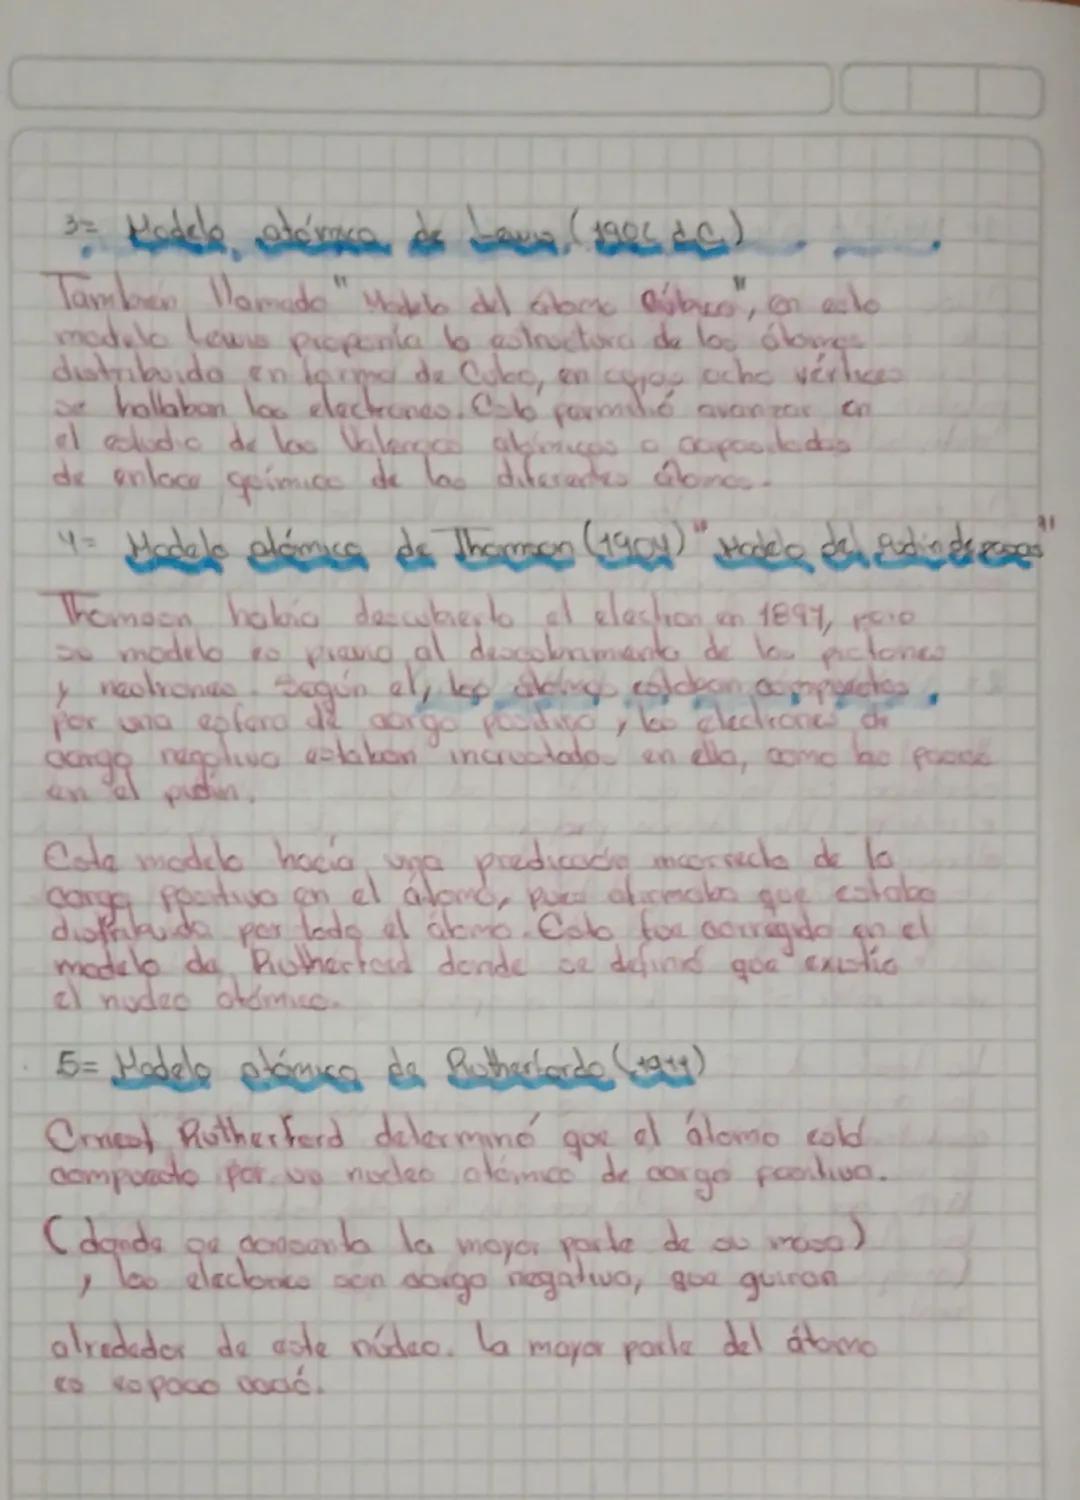 3= Modelo atómico de Lewis (1902 d.C)
También llamado "Modelo del átomo Cúbico", en este
modelo Lewis proponía la estructura de los átomos
distribuido en forma de Cubo, en cuyos ocho vértices
se hallaban los electrones. Esto permitió avanzar en
el estudio de las Valencias atómicas o capacidades
de enlace químico de los diferentes átomos.
4= Modelo atómico de Thomson (1904) "Modelo del Pudin de pasas"
Thomson había descubierto el electron en 1897, pero
su modelo es previo al descubrimiento de los protones
y neutrones. Según el, los átomos estaban compuestos
por una esfera de carga positiva y los electrones de
carga negativa estaban incrustados en ella, como las pasas
en el pudin.
Este modelo hacía una predicación incorrecta de la
carga positiva en el átomo, pues afirmaba que estaba
distribuida por todo el átomo. Esto fue corregido en el
modelo de Rutherford donde se definió que existía
el nucleo atómico.
5= Modelo atómico de Rutherfordo (1911)
Ernest Rutherford determinó que el átomo está
compuesto por un nucleo atómico de carga positiva.
(donde se concentra la mayor parte de su masa)
y los electrones con carga negativa, que guiran
alrededor de este núcleo. La mayor parte del átomo
es espacio vació.